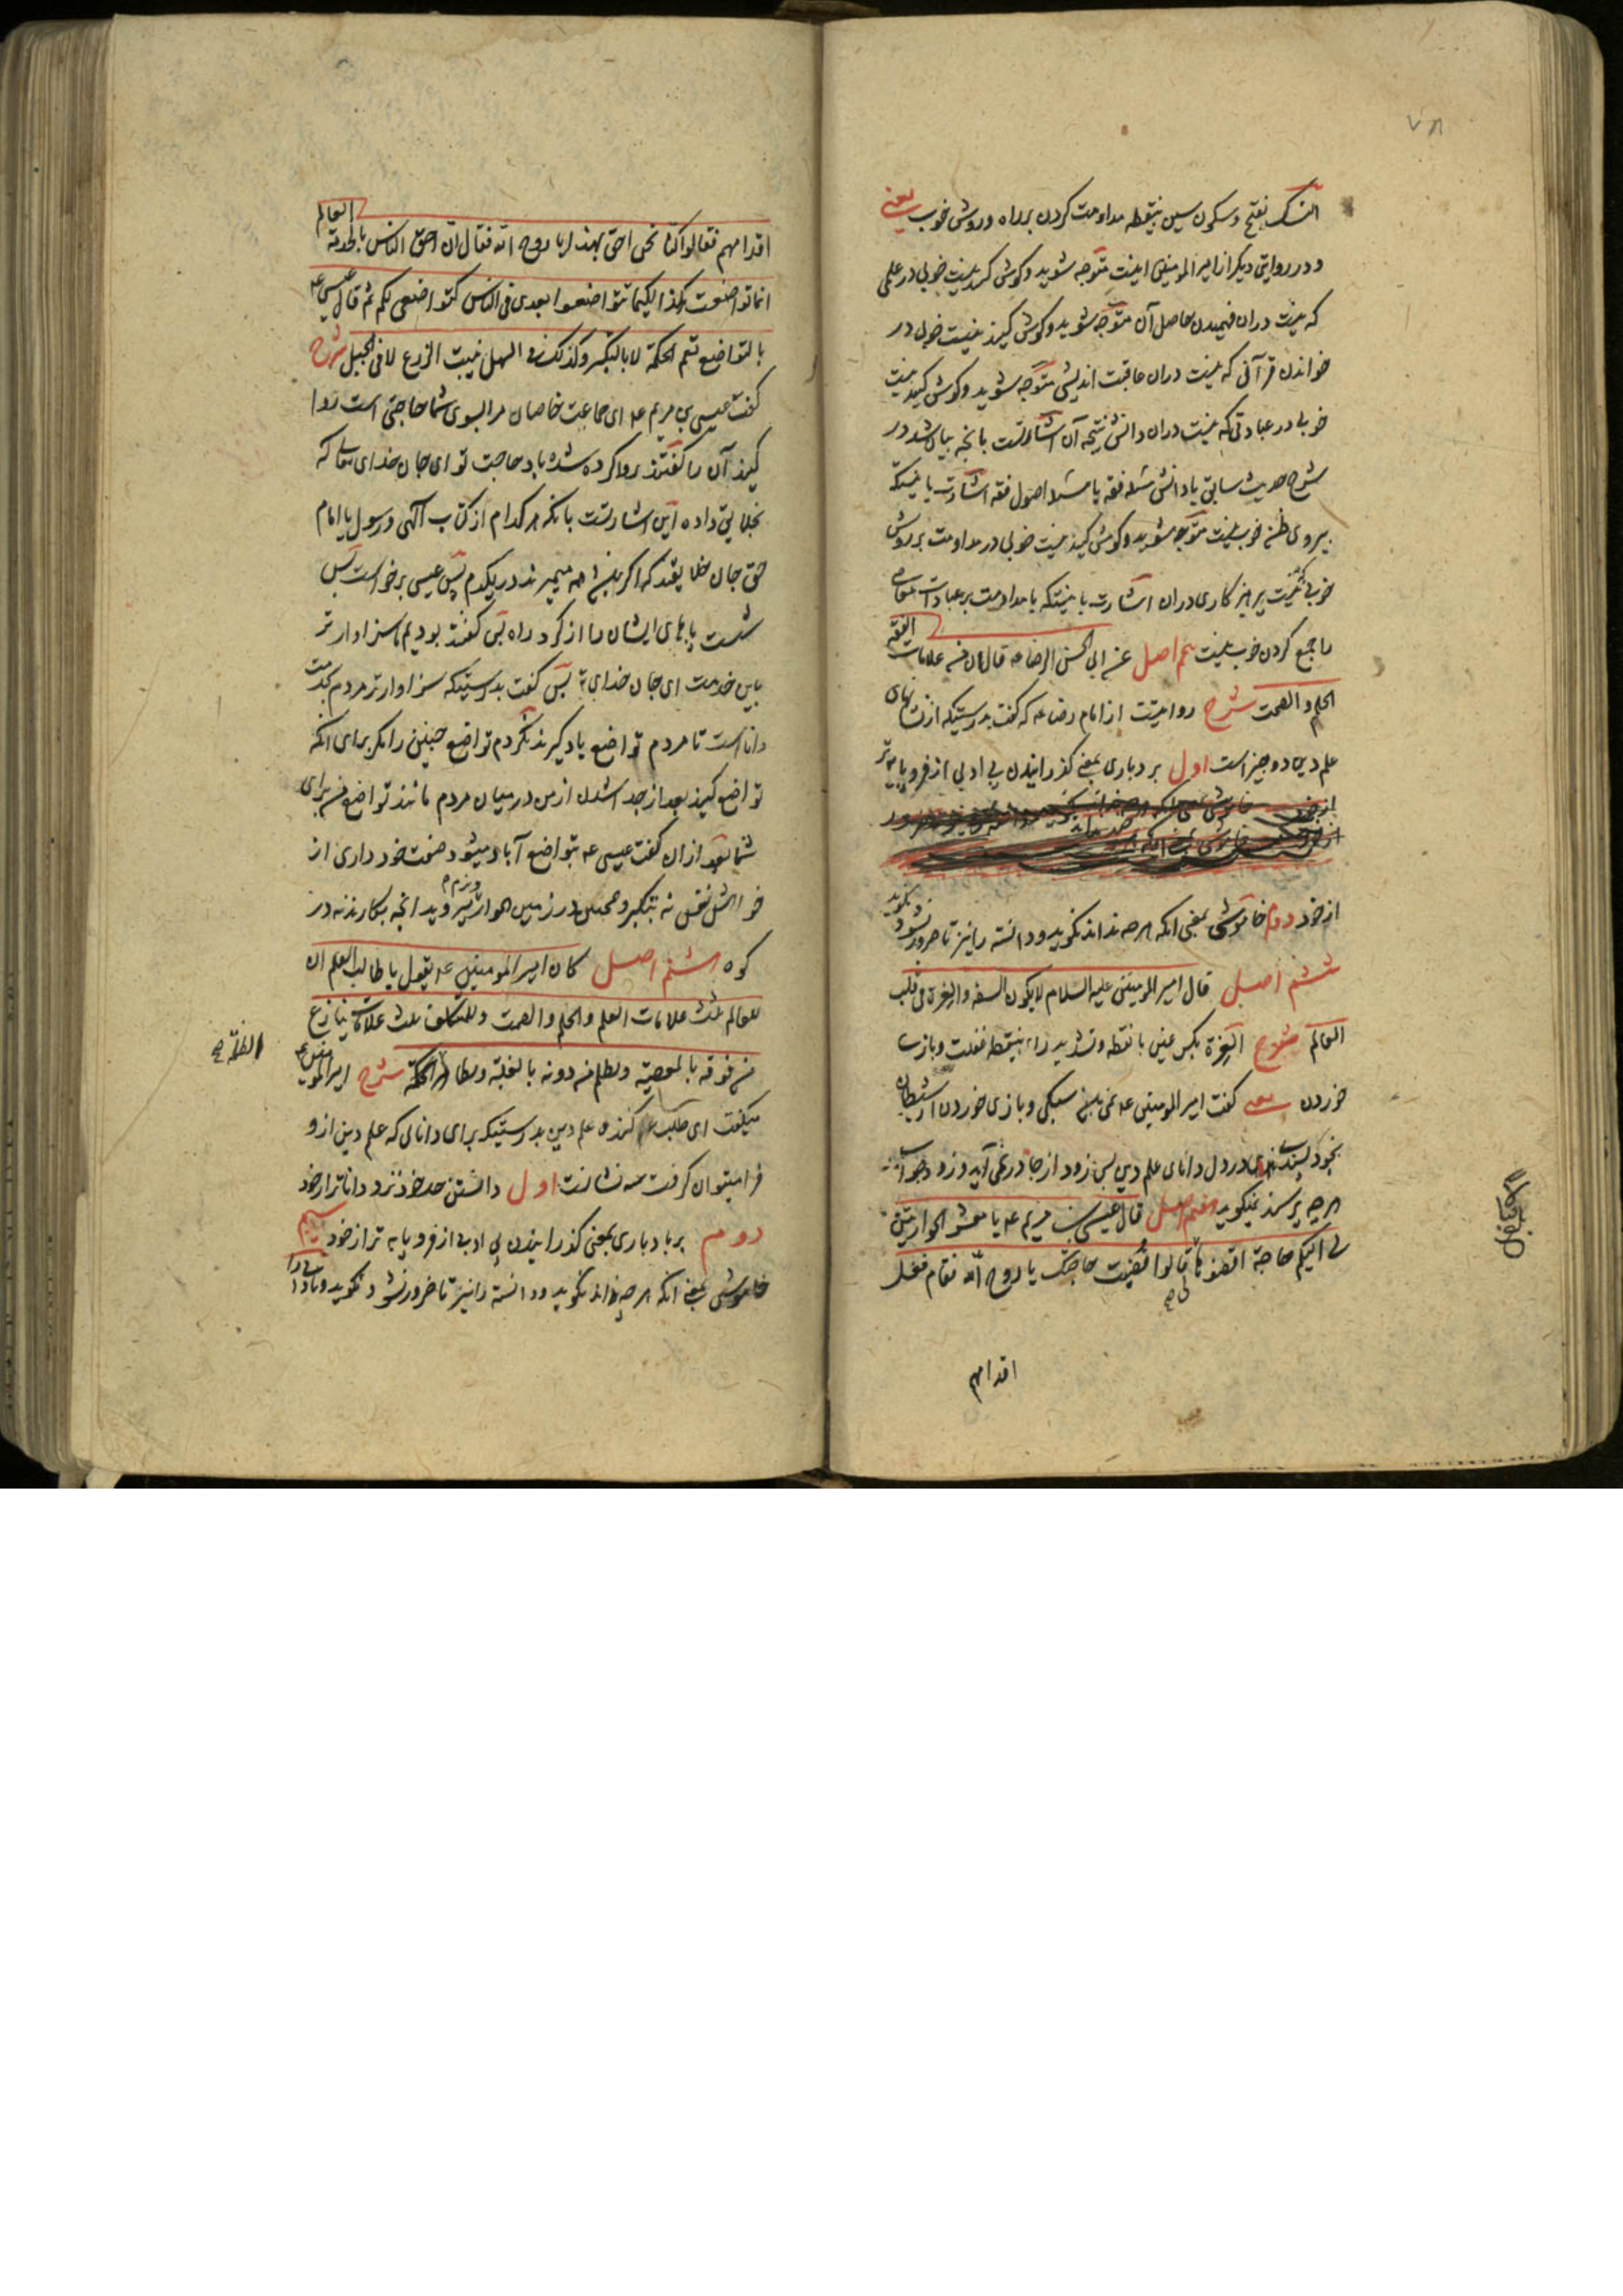 ۷۸
النسک بفتح و سکون سین بینقطه مداومت کردن بر راه و روش خوب یعنی
و در روایتی دیگر از امیر المومنین اینست متوجه شوید و کوشش کنید نیست خوبی در علمی
که نیست دران فهمیدن حاصل آن متوجه شوید و کوشش کنید نیست خوبی در
خواندن قرآنی که نیست دران عاقبت اندیشی متوجه شوید و کوشش کنید نیست
خوبی در عبادتی که نیست دران دانش نتیجه آن اشارتست بانچه بیان شد در
شرح حدیث سابق یا دانش مسئله فقه یا مسئله اصول فقه اشارت باینکه
پیروی ظن خوب نیست متوجه شوید و کوشش کنید نیست خوبی در مداومت بر روش
خوبی که نیست پرهیزکاری دران اشارت باینکه با مداومت بر عبادات معاصی
را جمع کردن خوب نیست پنجم اصل عن ابی الحسن الرضا عه قال ان من علامات الفقه
الحلم و الصمت شرح روایتست از امام رضا عه که گفت بدرستیکه از نشانهای
علم دین دو چیز است اول بردباری بمعنی گذرانیدن بی ادبی از فروپایه تر
از خود دوم خاموشی بمعنی انکه هر چه نداند نگوید و دانسته را نیز تا ضرور نشود نگوید
ششم اصل قال امیر المومنین علیه السلام لا یکون السفه و الغرة فی قلب
العالم شرح الغرة بکسر غین با نقطه و تشدید راء بینقطه غفلت و بازی
خوردن یعنی گفت امیر المومنین عه نمی باشد سبکی و بازی خوردن از شیطان
بخود پسندی در دل دانای علم دین پس زود از جا در نمی آید و زود جواب
هر چه پرسند نمیگوید هفتم اصل قال عیسی بن مریم عه یا معشر الحواریین
لی الیکم حاجة اقضوها لی قالوا قضیت حاجتک یا روح الله فقام فغسل
اقدامهم
اقدامهم فقالوا کنا نحن احق بهذا یا روح الله فقال ان احق الناس بالخدمة العالم
انما تواضعت هکذا لکیما تتواضعوا بعدی فی الناس کتواضعی لکم ثم قال عیسی عه
بالتواضع تعمر الحکمة لا بالتکبر و کذلک فی السهل ینبت الزرع لا فی الجبل شرح
گفت عیسی بن مریم عه ای جماعت خاصان مرا بسوی شما حاجتی است روا
کنید آن را گفتند روا کرده شده باد حاجت تو ای جان خدای تعالی که
بخلایق داده این اشارتست بانکه هر کدام از کتاب الهی و رسول یا امام
حق جان خلایقند که اگر نباشد همه میمیرند در یکدم پس عیسی برخواست پس
شست پاهای ایشان را از گرد راه پس گفتند بودیم ما سزاوارتر
باین خدمت ای جان خدای پس گفت بدرستیکه سزاوارتر مردم بخدمت
داناست تا مردم تواضع یاد گیرند نکردم تواضع چنین را مگر برای انکه
تواضع کنید بعد از جدا شدن از من در میان مردم مانند تواضع من برای
شما بعد ازان گفت عیسی عه بتواضع آباد میشود حکمت خود داری از
خواهش نفس نه بتکبر و همچنین در زمین هموار نرم میروید انچه بکارند نه در
کوه هشتم اصل کان امیر المومنین عه یقول یا طالب العلم ان
للعالم ثلث علامات العلم و الحلم و الصمت و للمتکلف ثلث علامات ینازع
من فوقه بالمعصیة و یظلم من دونه بالغلبة و یظاهر الظلمة شرح امیر المومنین عه
الظلمة صح
میگفت ای طلب کننده علم دین بدرستیکه برای دانای که علم دین ازو
فرا میتوان گرفت سه نشانست اول دانستن حد خود نزد داناتر از خود
دوم بردباری بمعنی گذرانیدن بی ادبی از فروپایه تر از خود سیم
خاموشی بمعنی انکه هر چه نداند نگوید و دانسته را نیز تا ضرور نشود نگوید